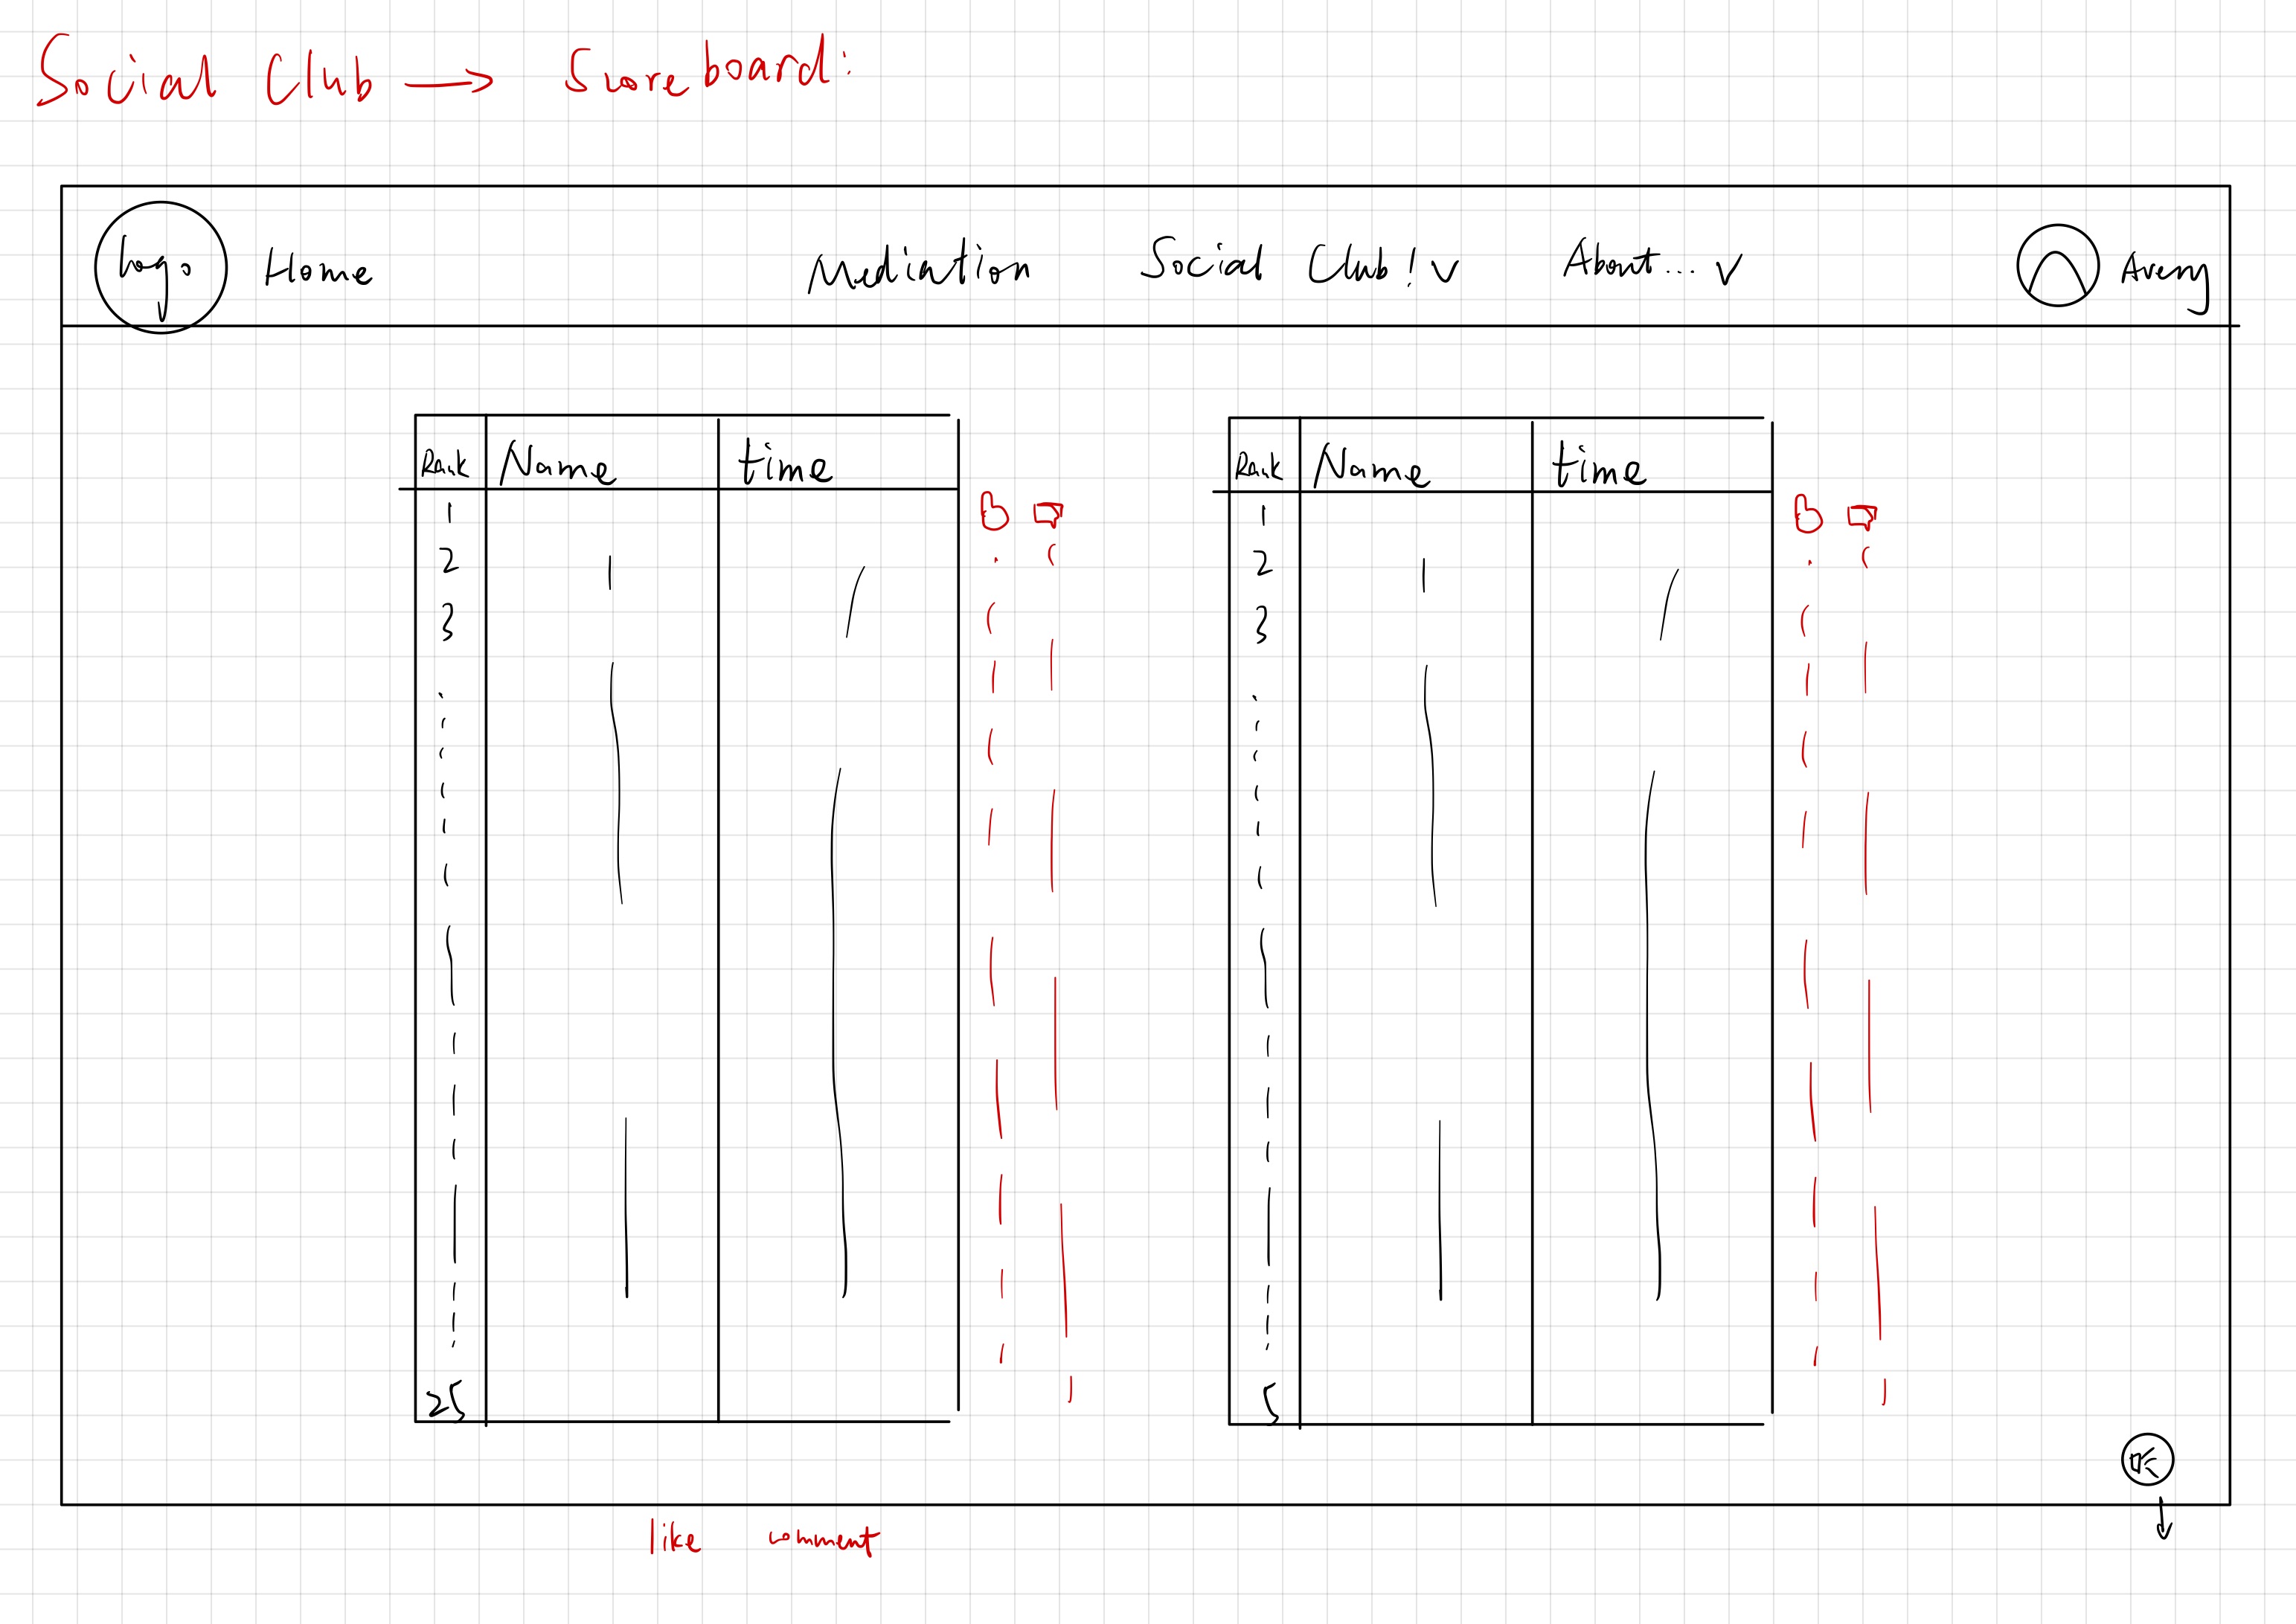 Social Club → Scoreboard:
Logo Home Mediation Social Club! ∨ About... ∨ Avery
Rank Name time
1
2
3
25
Rank Name time
1
2
3
5
like comment